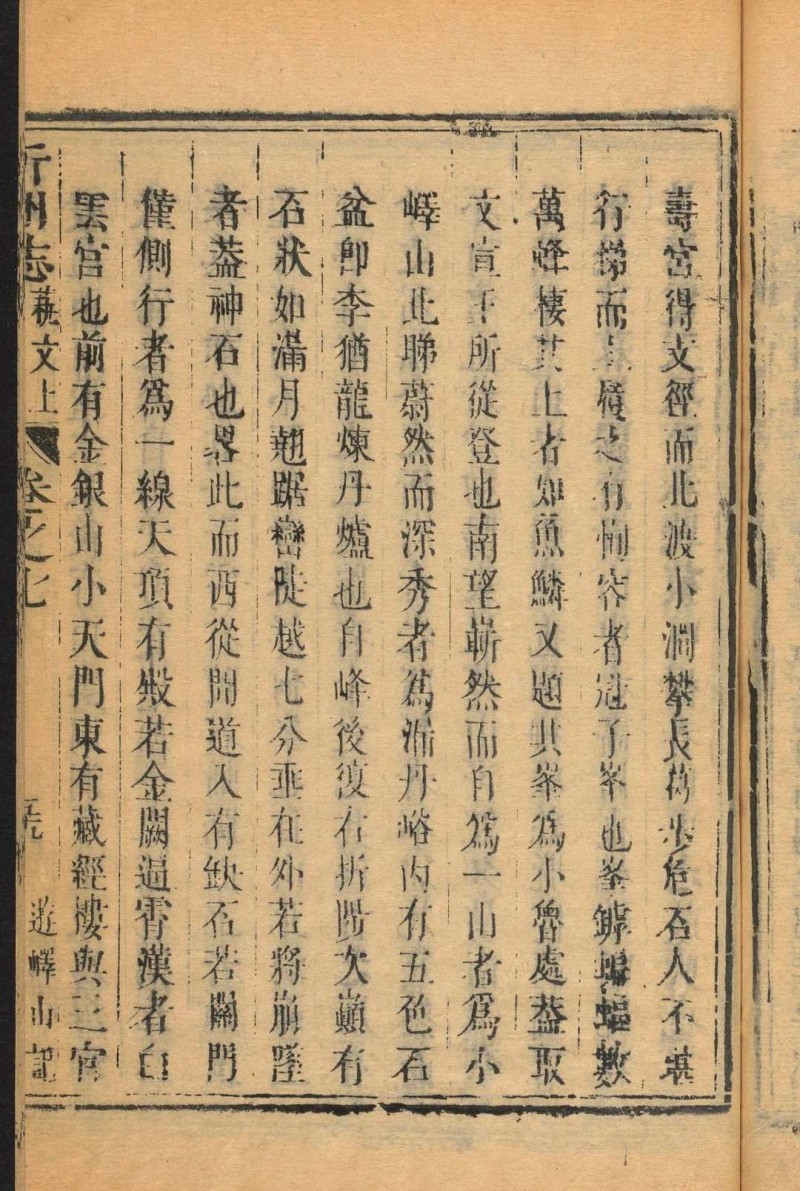 壽宮得支徑而北渡小澗攀長葛步危石人不堪
行繇而上蹬之有恂容者冠子峯也峯罅蝙蝠數
萬蜂棲其上者如魚鱗又題其峯為小魯處葢取
文宣王所從登也南望嶄然而自為一山者為小
嶧山北睇蔚然而深秀者為漏丹峪內有五色石
盆卽李猶龍煉丹爐也自峰後復右折陟次巔有
石狀如滿月翹踞巒陡越七分垂在外若將崩墜
者葢神石也畧此而西從間道入有鈌石若闢門
僅側行者爲一線天頂有殿若金闕逼霄漢者白
雲宮也前有金銀山小天門東有藏經樓與三官
沂州志 藝文上 卷之七 遊嶧山記